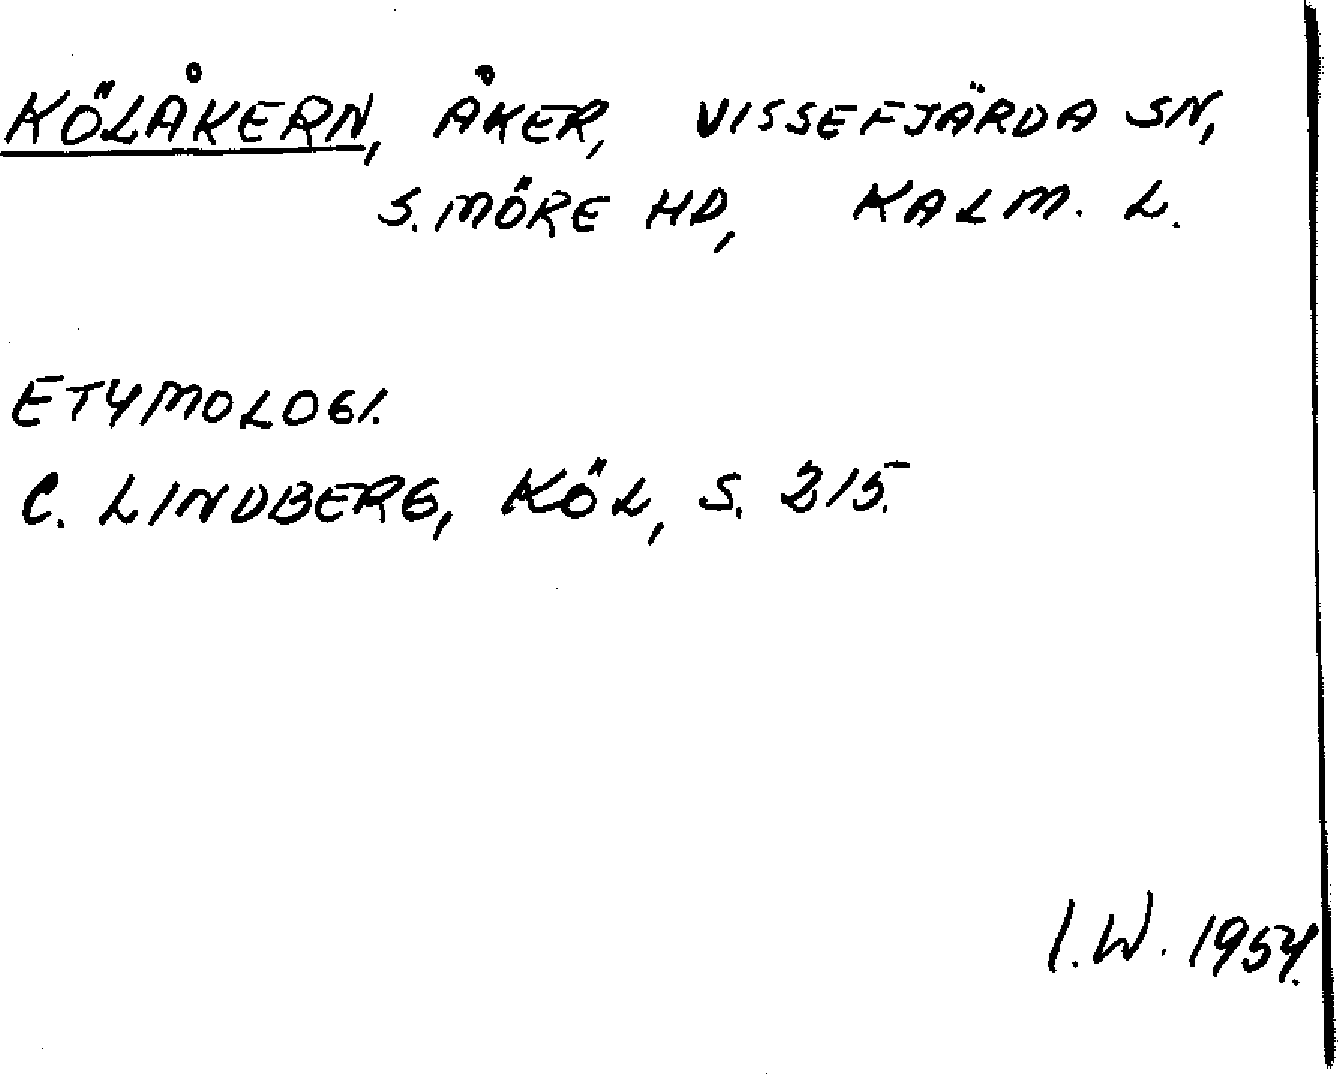 KÖLÅKERN, ÅKER, VISSEFJÄRDA SN,
S. MÖRE HD, KALM. L.
ETYMOLOGI.
C. LINDBERG, KÖL, S. 215.
I.W. 1954.